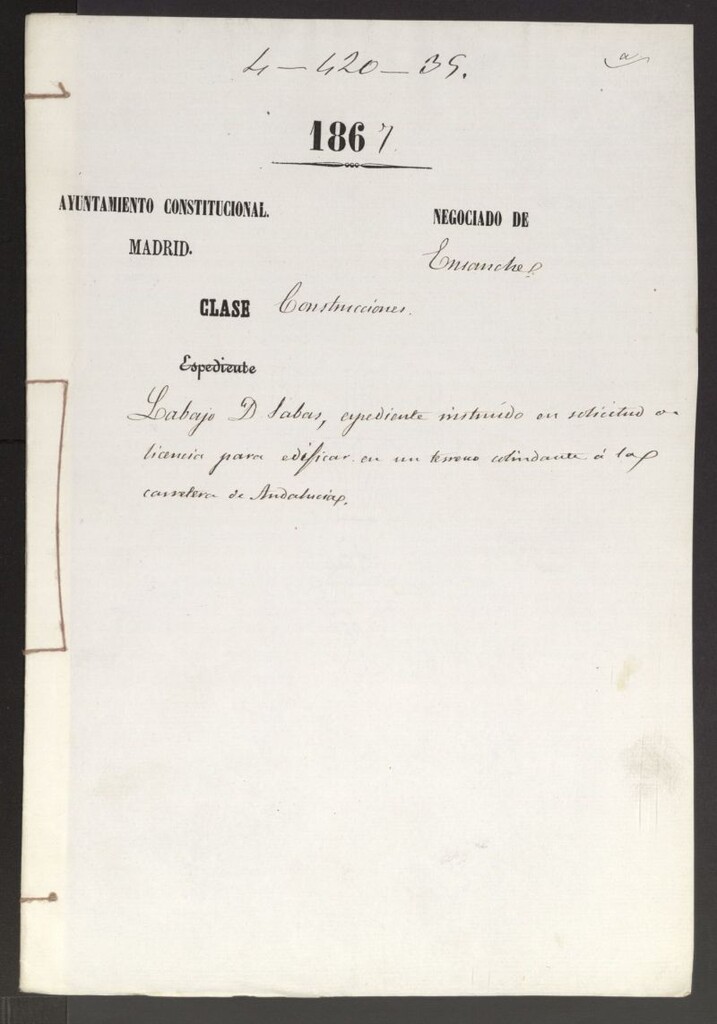 4-420-39.
1867
AYUNTAMIENTO CONSTITUCIONAL.
MADRID.
NEGOCIADO DE
Ensanche
CLASE Construcciones.
Espediente
Labajo D Sabas, espediente instruido en solicitud
licencia para edificar en un terreno colindante á la
carretera de Andalucia.